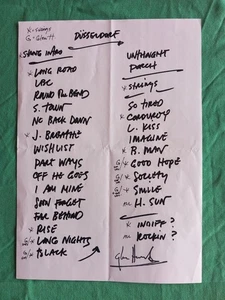 DÜSSELDORF
INTRO
* LONG ROAD
LBC
ROUND BEND
S. TOWN
NO BACK DOWN
* J. BREATHE
WISHLIST
PART WAYS
OFF HE GOES
I AM MINE
SOON FORGET
FAR BEHIND
* RISE
G/* LONG NIGHTS
G/* BLACK
UNTHOUGHT
PORCH
* STRINGS
SO TIRED
* CORDUROY
L. KISS
IMAGINE
* B. MAN
G/* GOOD HOPE
G/* SOCIETY
G/* SMILE
~ H. SUN
* INDIFF ?
~ ROCKIN ?